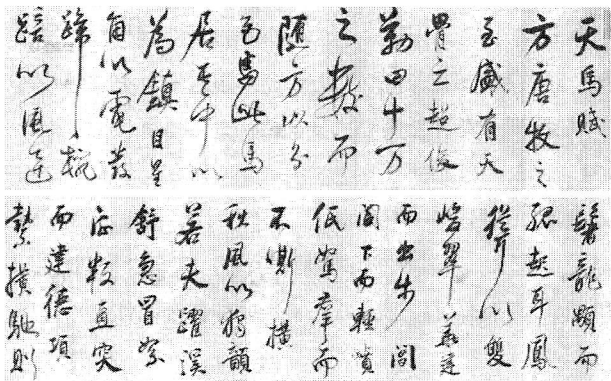 天馬賦
方唐牧之
至盛有天
骨之超俊
勒四十万
之數而
隨方以分
色焉此馬
居其中以
為鎮目星
角以電發
蹄踠
踣以風迅
鬐龍顒而
孤起耳鳳
聳以雙
峻翠華建
而出步閶
闔下而輕噴
低駑群而
不嘶橫
秋風以獨韻
若夫躍溪
舒急冒絮
征叛直突
而建德項
縶橫馳則